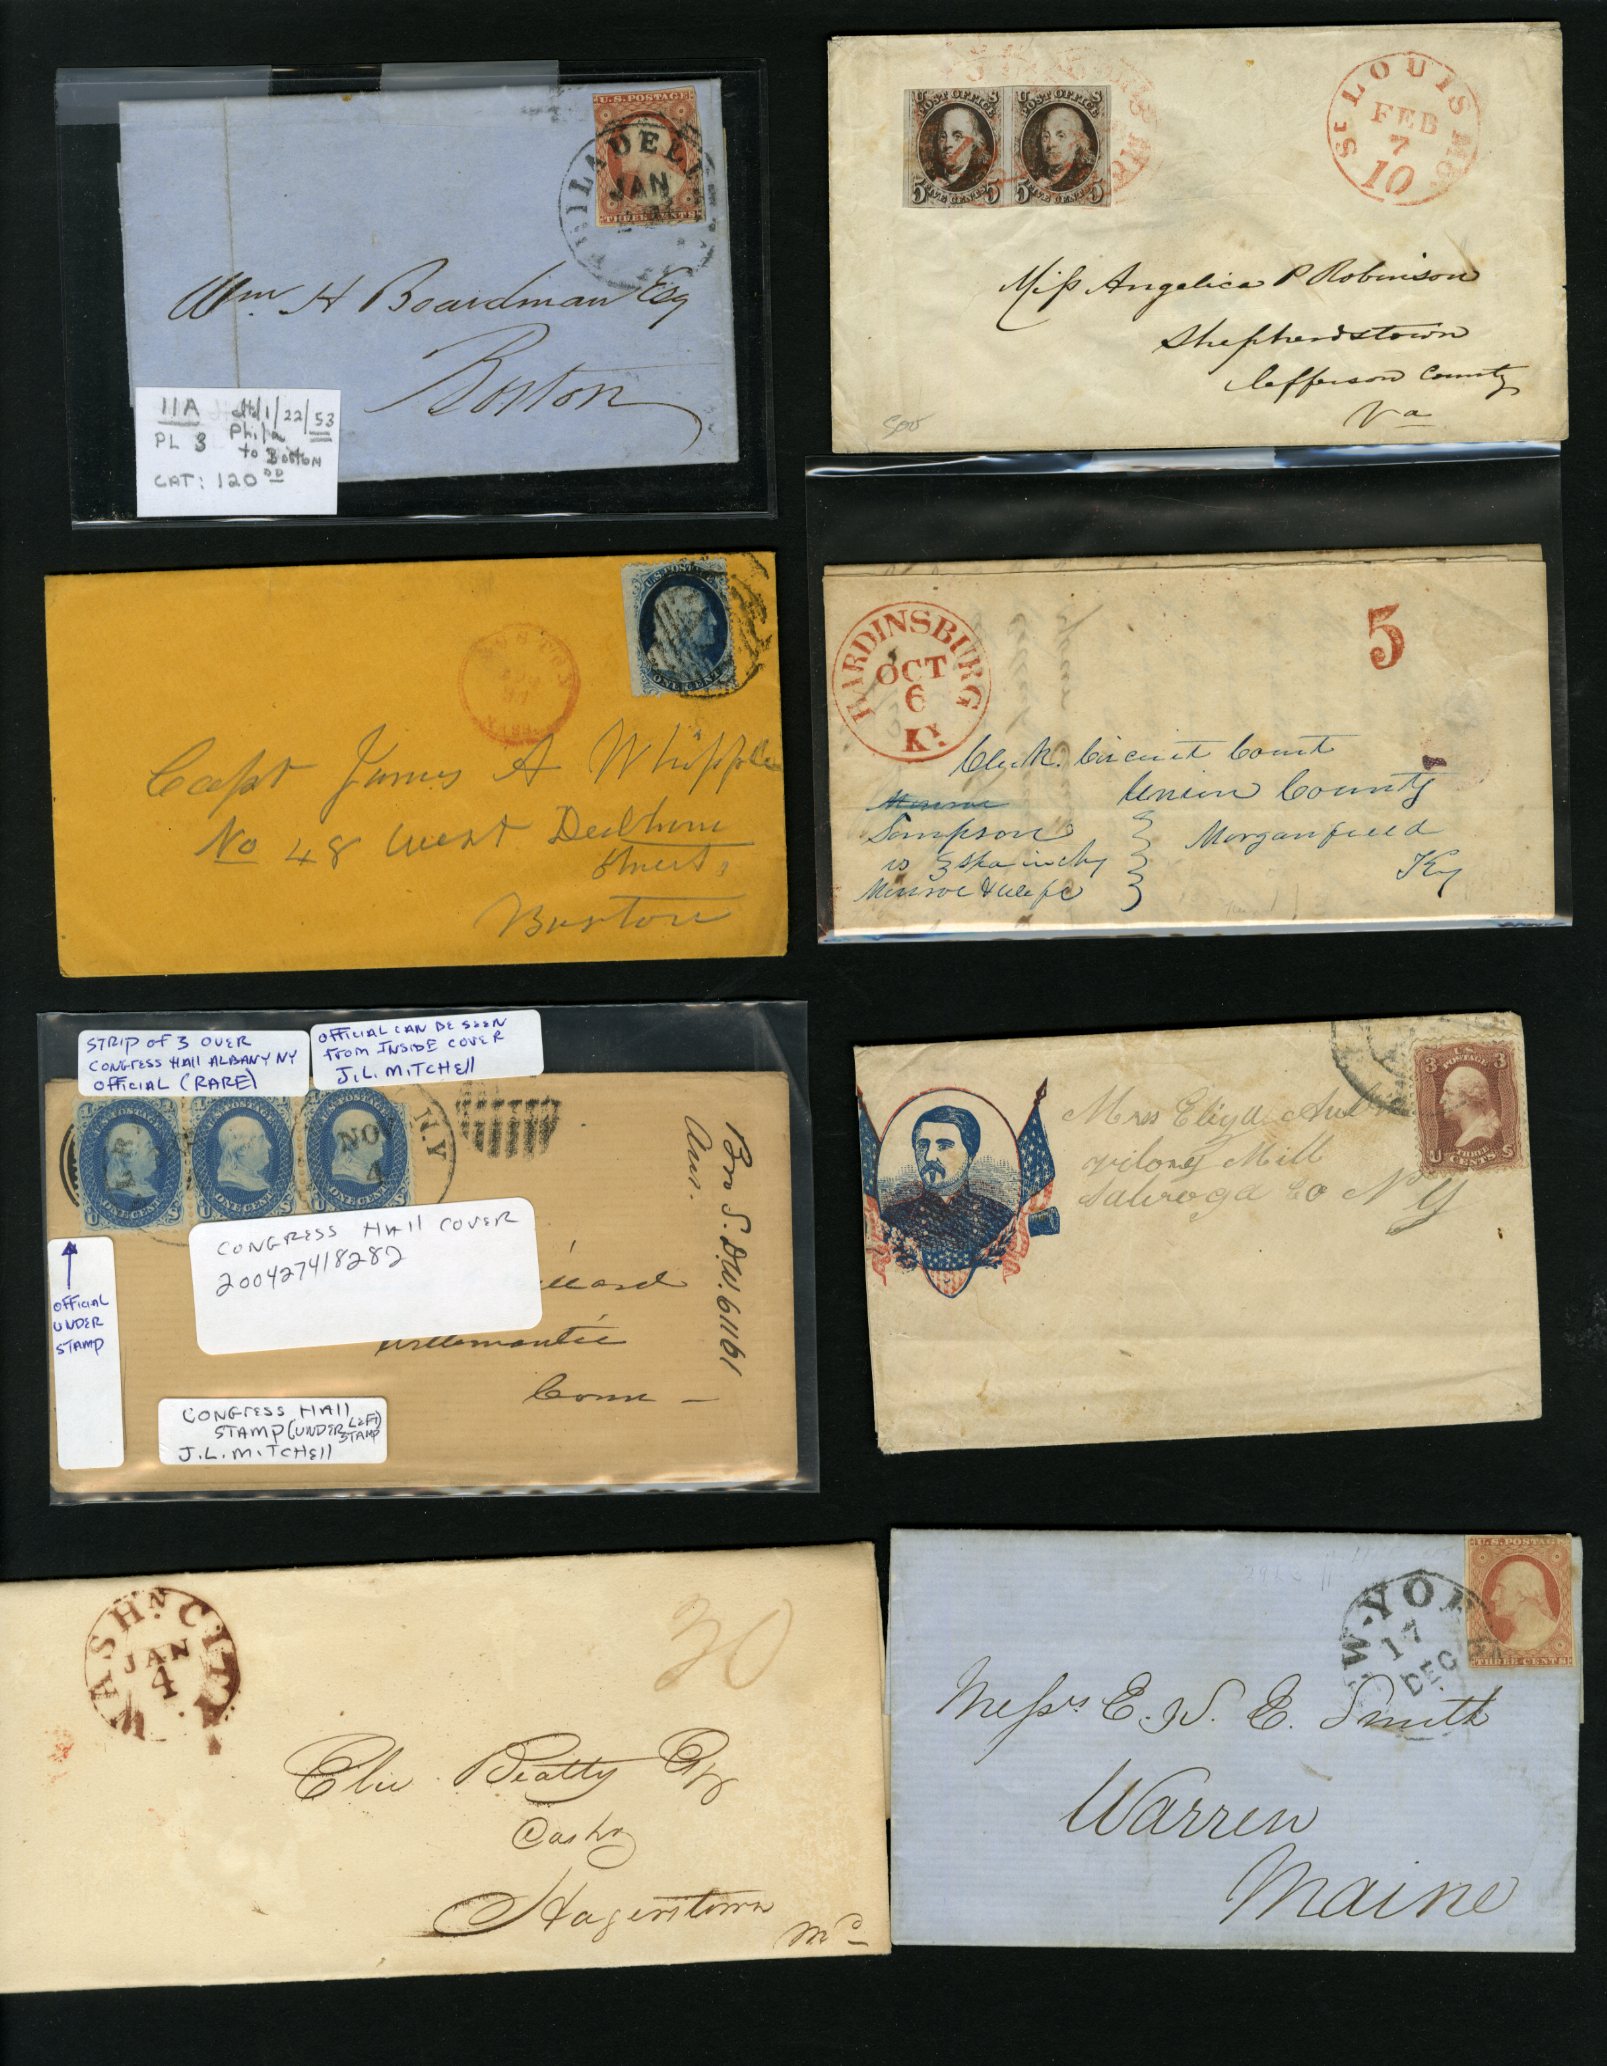 U.S. POSTAGE
THREE CENTS
JAN
Wm. H Boardman Esq
Boston
11A dtd 1/22/53
PL 3 Phila
to Boston
CAT: 120 00
U S
POST OFFICE
5 FIVE CENTS 5
U S
POST OFFICE
5 FIVE CENTS 5
St LOUIS Mo.
FEB
7
10
Miss Angelica P Robinson
Shepherdstown
Jefferson County
Va
U.S. POSTAGE
ONE CENT
BOSTON
Capt James A Whipple
No 48 West Dedham
Street
Boston
BARDINSBURG
OCT
6
KY.
5
Clerk. Circuit Court
Union County
Monroe
Sampson
vs
Monroe & wife
Morganfield
Ky
STRIP OF 3 OVER
CONGRESS HAll ALBANY NY
OFFICIAL (RARE)
OFFICIAL CAN BE SEEN
FROM INSIDE COVER
J.L. MITCHEll
U.S. POSTAGE
ONE CENT
U.S. POSTAGE
ONE CENT
U.S. POSTAGE
ONE CENT
NO
4
N.Y.
CONGRESS HAll COVER
200427418282
OFFICIAL
UNDER
STAMP
Willemantic
Conn
CONGRESS HAll
STAMP (UNDER LEFT STAMP)
J.L. MITCHEll
3 U.S. POSTAGE 3
U THREE CENTS S
Mrs
Mill
Co N Y
WASHN CITY
JAN
4
30
Elie Beatty Esqr
Cashr
Hagerstown
Md
U.S. POSTAGE
THREE CENTS
NEW-YORK
17
DEC
Messrs E. & E. Smith
Warren
Maine